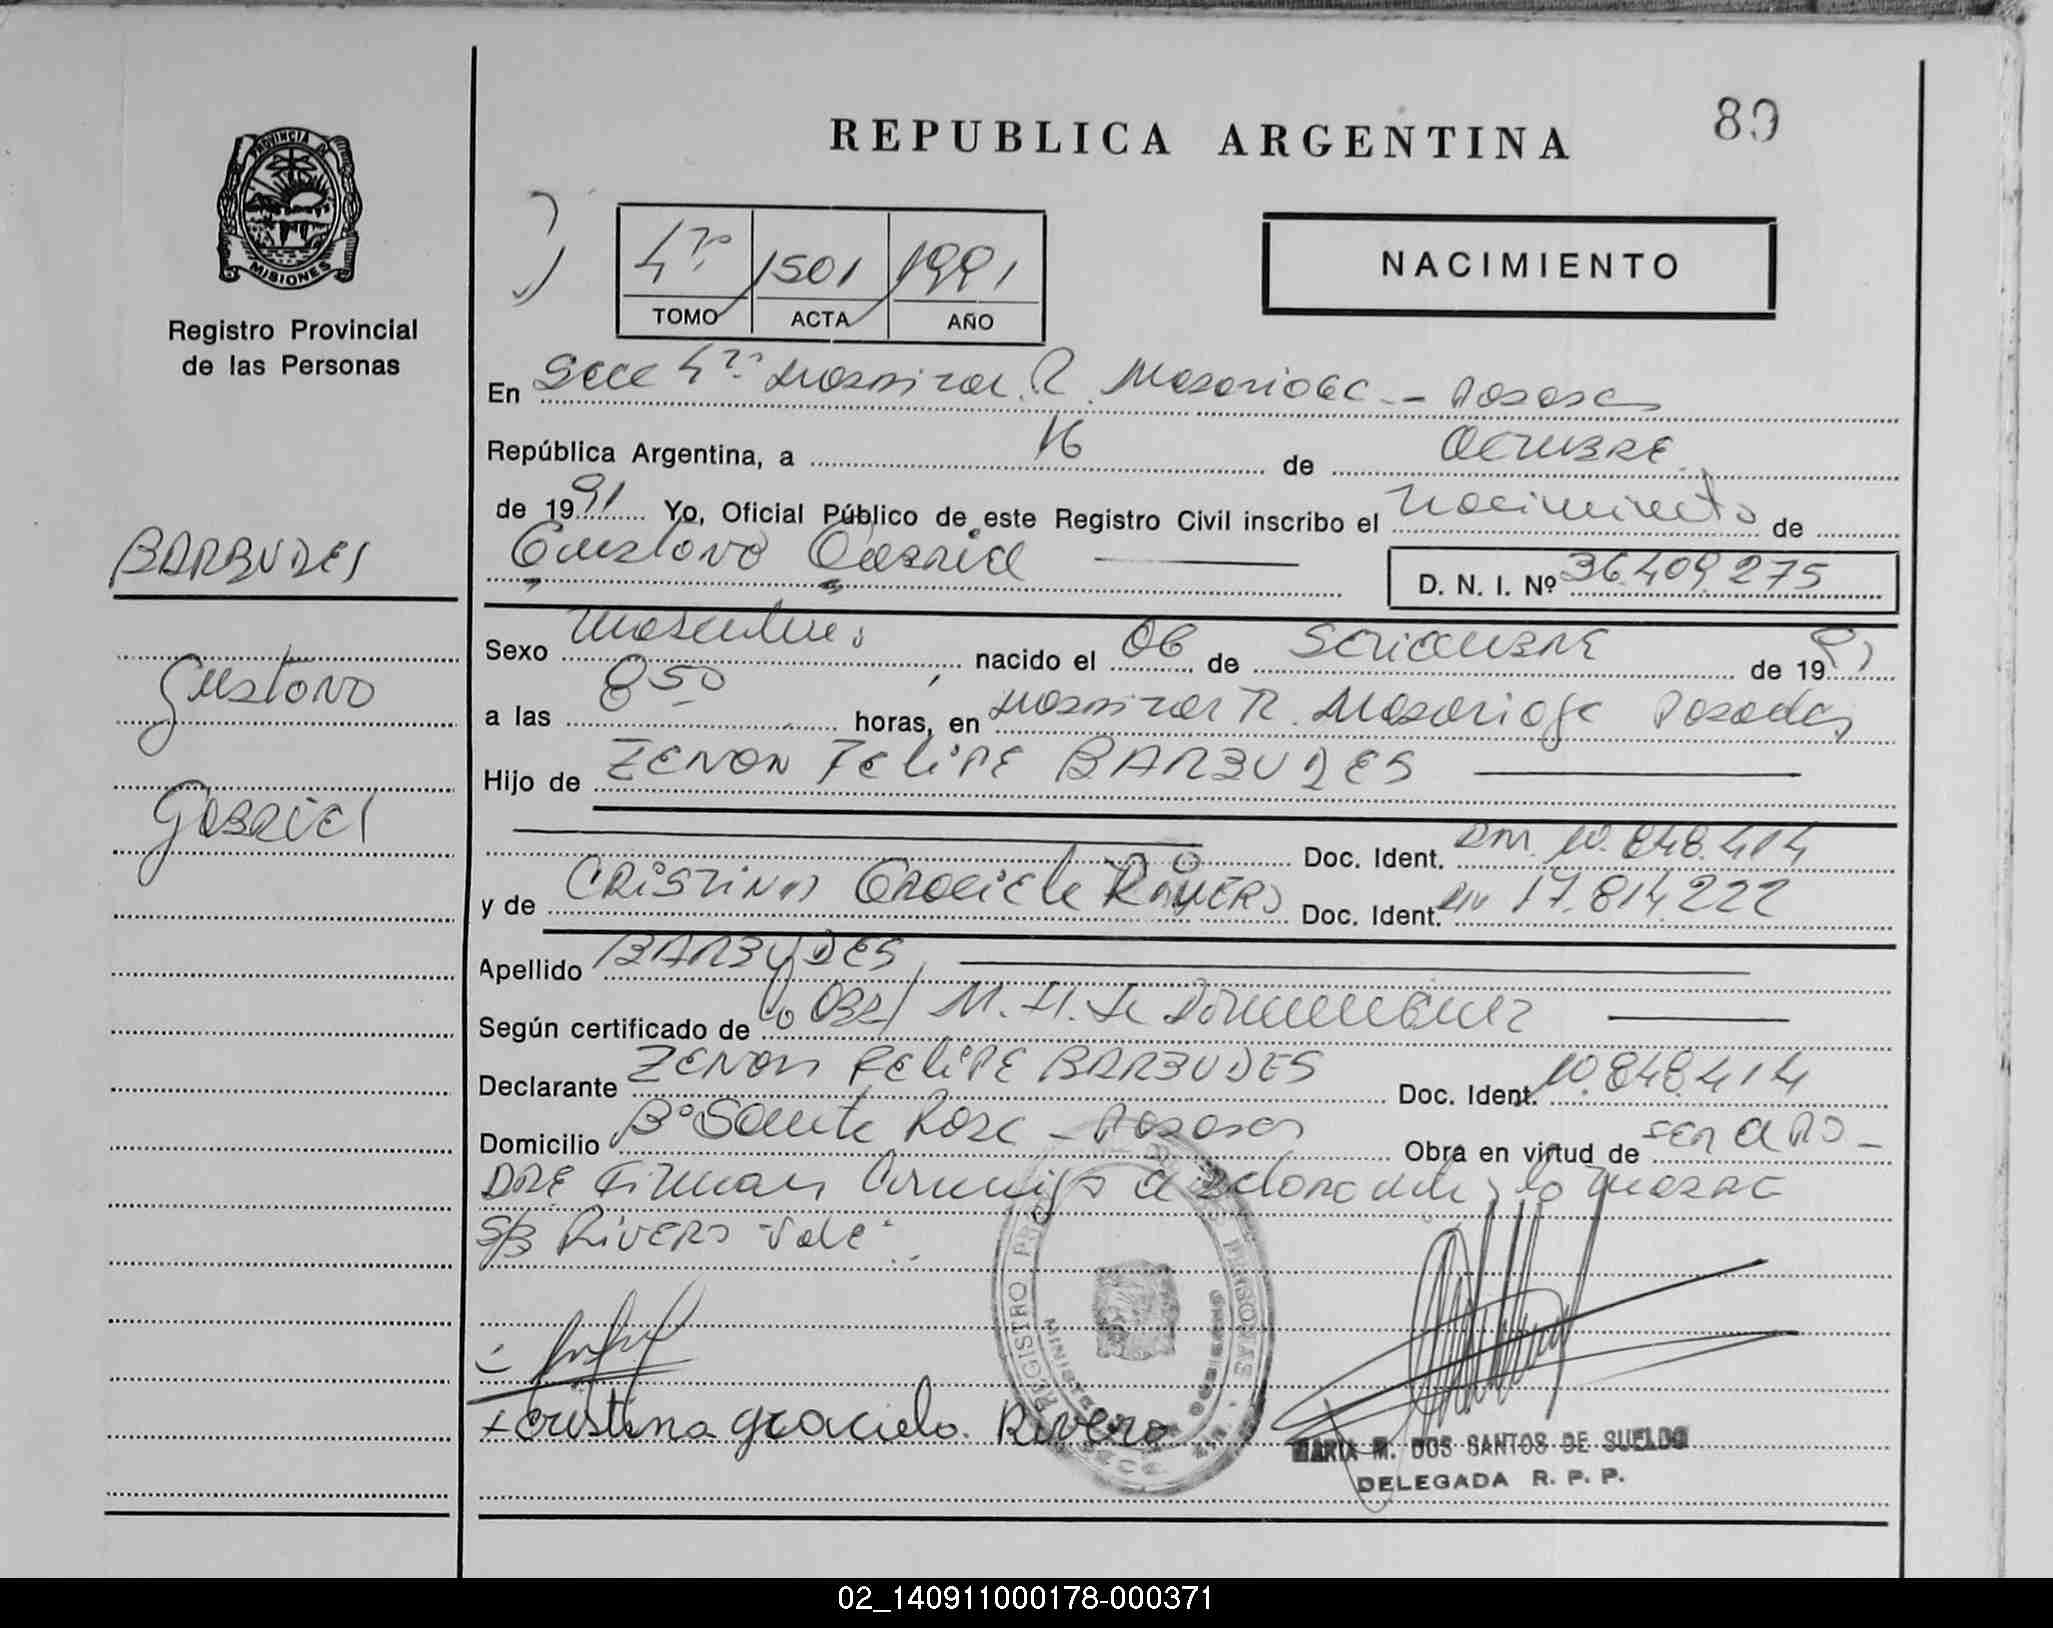 REPUBLICA ARGENTINA
89
PROVINCIA DE
MISIONES
Registro Provincial
de las Personas
4to 1501 1991
TOMO ACTA AÑO
NACIMIENTO
En Secc 4ta Hospital R. Madariaga - Posadas
República Argentina, a 16 de Octubre
de 1991 Yo, Oficial Público de este Registro Civil inscribo el nacimiento de
Gustavo Gabriel
D. N. I. Nº 36.409.275
BARBUDES
Gustavo
Gabriel
Sexo masculino, nacido el 06 de Setiembre de 1991
a las 8 50 horas, en Hospital R. Madariaga Posadas
Hijo de ZENON FELIPE BARBUDES
Doc. Ident. DNI. 10.848.414
y de CRISTINA Graciela RIVERO Doc. Ident. DNI 17.814.222
Apellido BARBUDES
Según certificado de la Obst/ M. H. de
Declarante ZENON FELIPE BARBUDES Doc. Ident. 10.848.414
Domicilio Bº Santa Rosa - Posadas Obra en virtud de ser el PA-
DRE Firman conmigo el declarante y la madre
S/B RIVERO -Vale-
x cristina graciela. Rivero
REGISTRO PERSONAS
MARIA M. DOS SANTOS DE SUELDO
DELEGADA R. P. P.
02_140911000178-000371